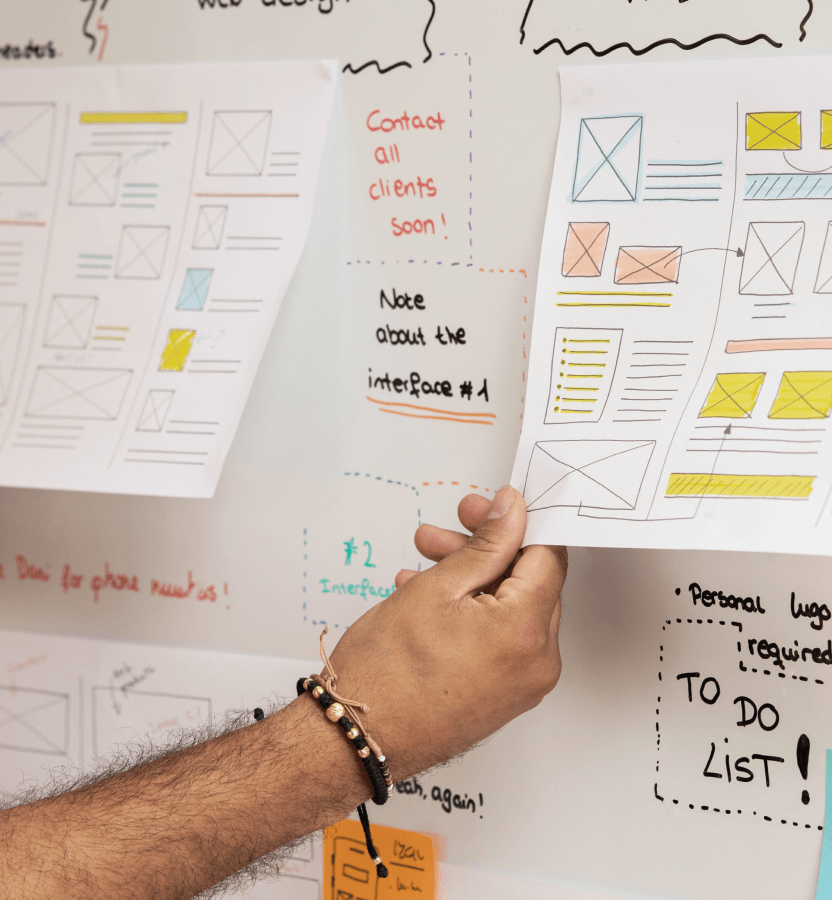 web design
Contact
all
clients
soon!
Note
about the
interface #1
#2
Interface
for phone
• Personal logo
required
TO
DO
LIST!
again!